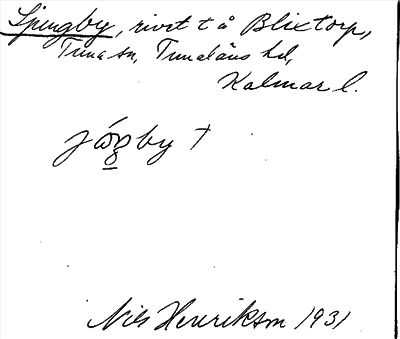 Ljungby, rivet t å Blixtorp,
Tuna sn, Tunaläns hd,
Kalmar l.
by †
Nils Henrikson 1931